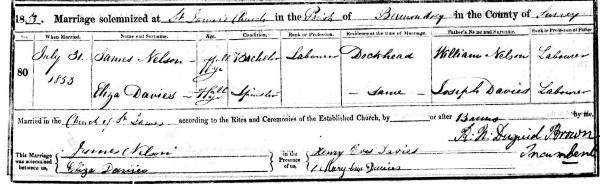 1853. Marriage solemnized at St James's Church in the Parish of Bermondsey in the County of Surrey
When Married. Name and Surname. Age. Condition. Rank or Profession. Residence at the time of Marriage. Father's Name and Surname. Rank or Profession of Father
80 July 31 James Nelson Full Age Bachelor Labourer Dockhead William Nelson Labourer
1853 Eliza Davies Full Age Spinster – Same – Joseph Davies Labourer
Married in the Church of St James according to the Rites and Ceremonies of the Established Church, by or after Banns by me,
This Marriage was solemnized between us, James Nelson In the Presence of us, Henry Davies R. N. Duguid Brown
Eliza Davies Mary Ann Incumbent